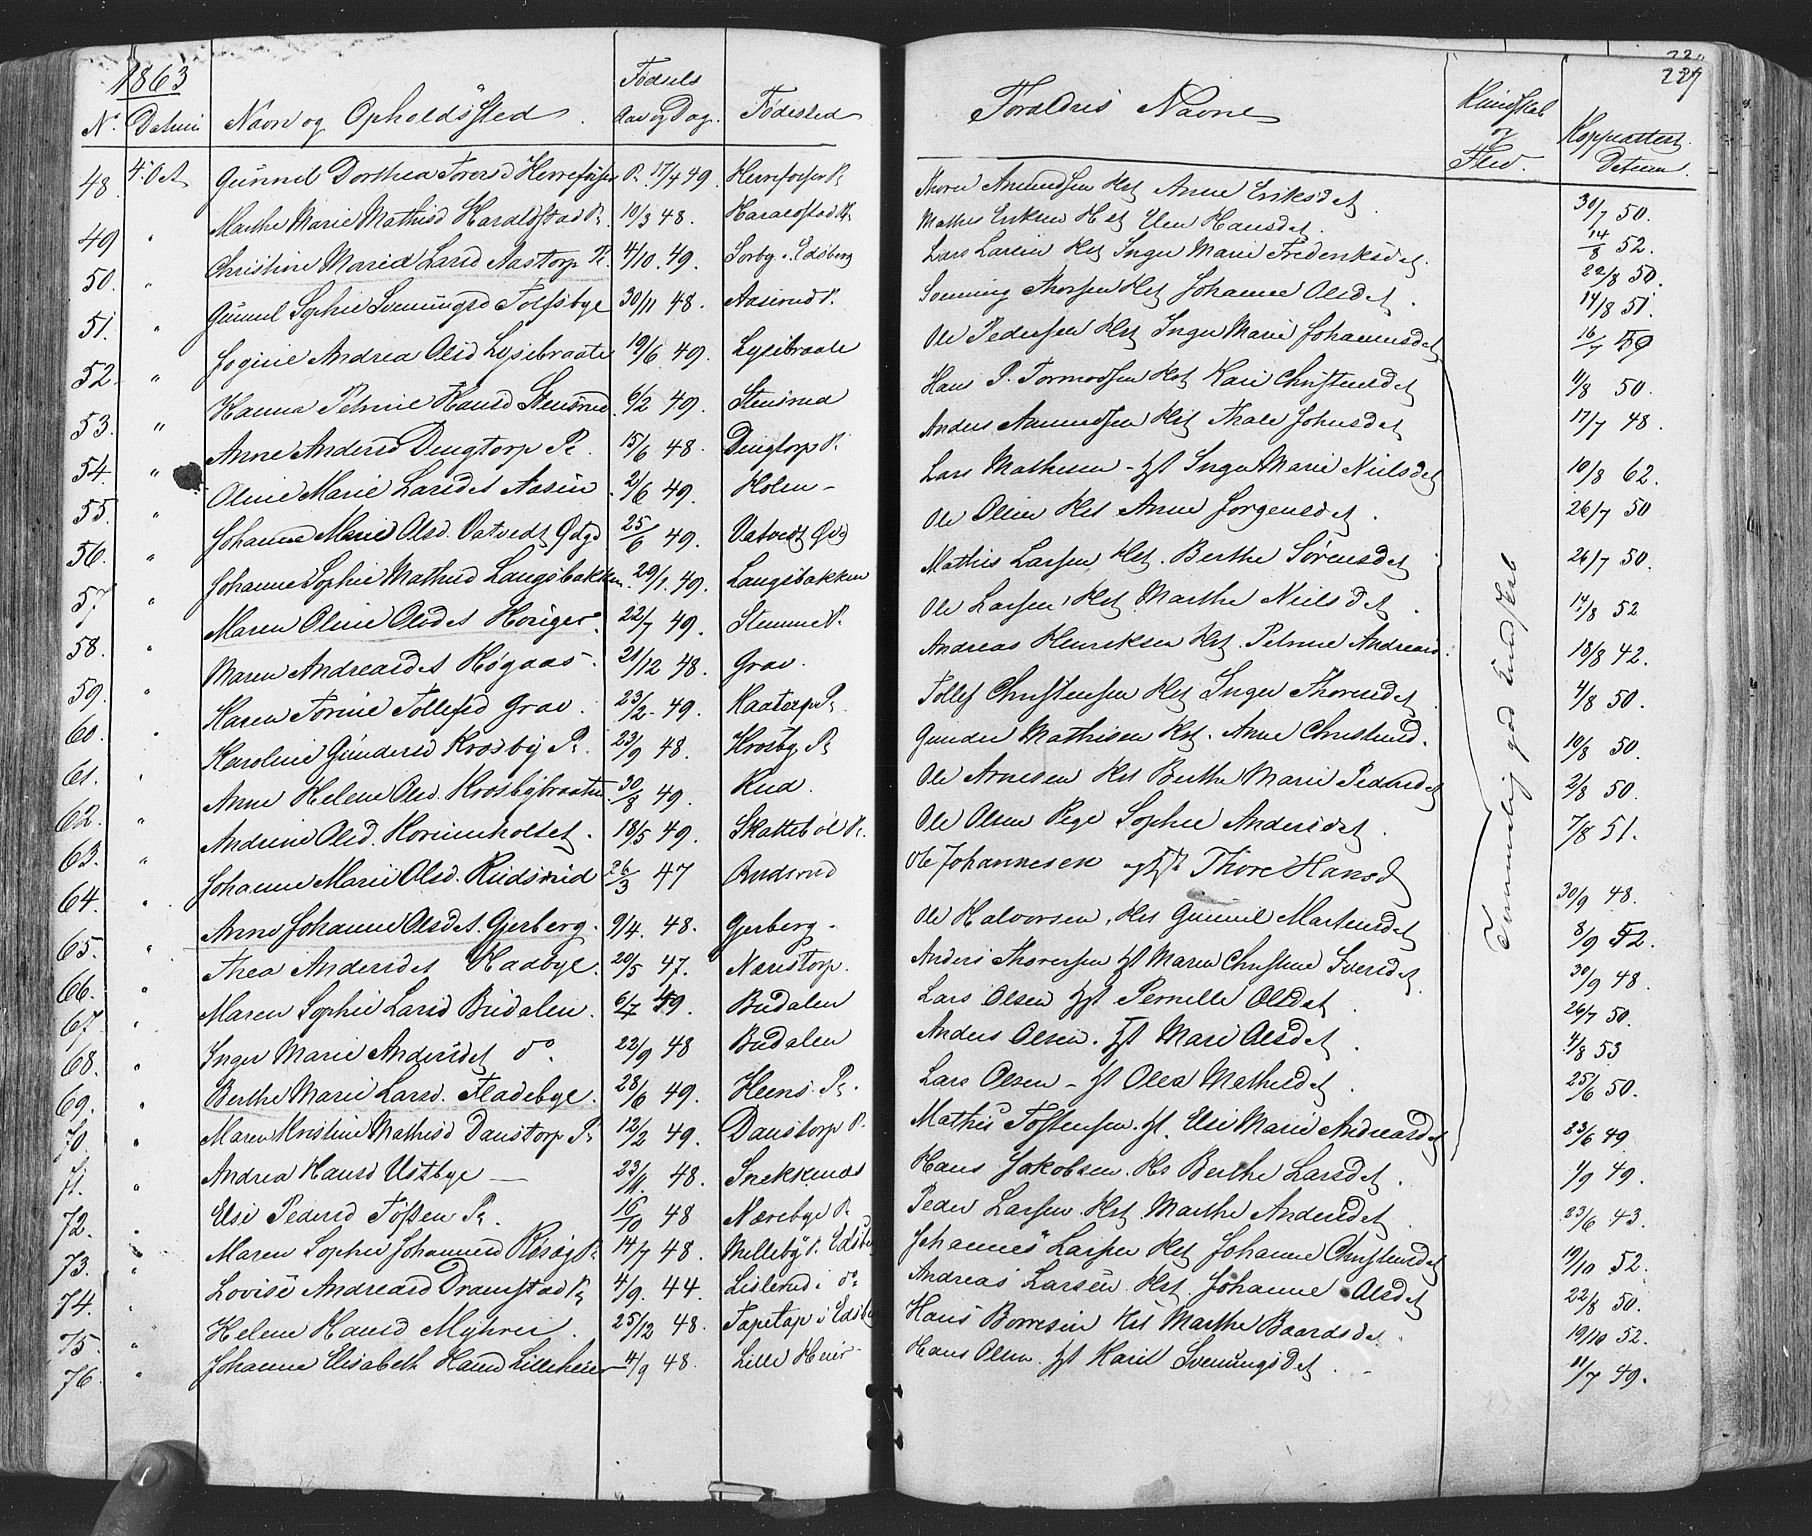 1863
229
N. Datum Navn og Opholdssted Fødsels Aar og Dag. Fødested Forældres Navne Kundskab og Flid. Koppeattest Datum.
48. 4. Oct Gunnel Dorthea Toresd Herrefosser P. 17/4 49. Herrefosser P. Thore Amundsen Kst Anne Eriksdet. 30/7 50.
49 " Marthe Marie Mathisd Haraldstad P. 10/3 48. Haraldstad P. Mathis Eriksen Kst Elen Hansdet. 14/8 52.
50. " Christine Marie Larsd Aastorp P. 4/10. 49. Sorby i Edsberg Lars Larsen Kst Inger Marie Frederiksdet. 22/8 50.
51. " Gunnel Sophie Svenningsd Tolfsbye 30/11 48. Aaserud P. Svenning Thorsen Kst Johanne Olsdet. 14/8 51.
52. " Jogine Andrea Olsd Lysebraate 19/6. 49. Lysebraate Ole Pedersen Kst Inger Marie Johannesdet 16/7 59
53. " Hanna Petrine Hansd Stensrud. 6/2 49. Stensrud Hans P. Tormodsen Kst Kari Christensdet 11/8 50.
54. " Anne Andersd Dingtorp P. 15/6 48. Dingtorp P. Anders Amundsen Kst Thale Johnsdet 17/7 48.
55. " Oline Marie Larsdet Aasen 2/6 49. Holen - Lars Mathesen - gft Inger Marie Nielsdet 10/8 62.
56. " Johanne Marie Olsd. Vatvedt Ødgd 25/6 49. Vatvedt Ødg Ole Olsen Kst Anne Jørgensdet. 26/7 50
57 " Johanne Sophie Mathisd Langsbakken. 29/1. 49. Langsbakken Mathis Larsen Kst. Berthe Sørensdet 26/7 50.
58. " Maren Oline Olsdet Horiger. 22/7 49. Stemme P. Ole Larsen, Kst Marthe Nielsdet. 14/8 52
59. " Maren Andreasdet Høgaas. 21/12 48. Grav. Andreas Henriksen Kst. Petrine Andreasd. 18/8 42.
60. " Karen Torine Tollefsd Grav. 23/2. 49. Kaatorp P. Tollef Christensen Kst Inger Thorensdet 4/8 50.
61. " Karoline Gundersd Krosby P. 23/9 48. Krosby P. Gunder Mathisen Kst. Anne Christensd. 10/8 50.
62. " Anne Helene Olsd. Krosbybraaten 30/8 49. Rud. Ole Arnesen Kst Berthe Marie Pedersdet 2/8 50.
63. " Andrine Olsd. Hornenholtet. 18/5 49. Skattebøl P. Ole Olsen Pege Sophie Andersdet. 7/8 51.
64. " Johanne Marie Olsd. Rudsrud 26/3 47 Rudsrud Ole Johannesen og gft Thore Hansd
65. " Anne Johanne Olsdet. Gjerberg. 9/4. 48. Gjerberg. Ole Halvorsen, Kst Gunnil Martensdet 30/9 48.
66. " Thea Andersdet Haabye. 20/5 47. Nærstorp. Anders Thoresen gft Maren Christine Iversdet 8/9 52.
67. " Maren Sophie Larsd Budalen. 6/4 49. Budalen Lars Olsen gft Pernille Olsdet. 30/9 48.
68. " Inger Marie Andersdet do. 22/9 48 Budalen Anders Olsen. gft Mari Olsdet. 26/7 50.
69. " Berthe Marie Larsd. Fladebye. 28/6 49. Heens. P. Lars Olsen - gft Olea Mathisdet. 4/8 53
70. " Maren Kristine Mathisd Danstorp P. 12/2 49. Danstorp P. Mathis Tostensen. gft. Elsi Marie Andreasdet 25/6 50.
71. " Andrea Hansd Ustbye 23/11. 48. Snekkenæs Hans Jakobsen. Ks Berthe Larsdet. 23/6 49
72. " Elsi Pedersd Tosten P. 16/10 48 Nærebye P. Peder Larsen Kst Marthe Andersdet. 1/9 49.
73. " Maren Sophie Johannesd Røsæg P. 14/7 48. Melleby P. Edsberg Johannes Larsen Kst Johanne Christensdet 23/6 43.
74. " Lovise Andreasd Dramstad P. 4/9. 44. Lislerud i do Andreas Larsen. Kst. Johanne Olsdet 19/10 52.
75. " Helene Hansd Myhrer. 25/12 48. Tapetap i Edsberg Hans Borresen Kst Marthe Baardsdet. 22/8 50.
76. " Johanne Elisabeth Hansd Lilleheier 4/9 48. Lille Heier Hans Olsen. gft Karil Svenungsdet. 19/10 52.
11/7 49.
Temmelig god Kundskab